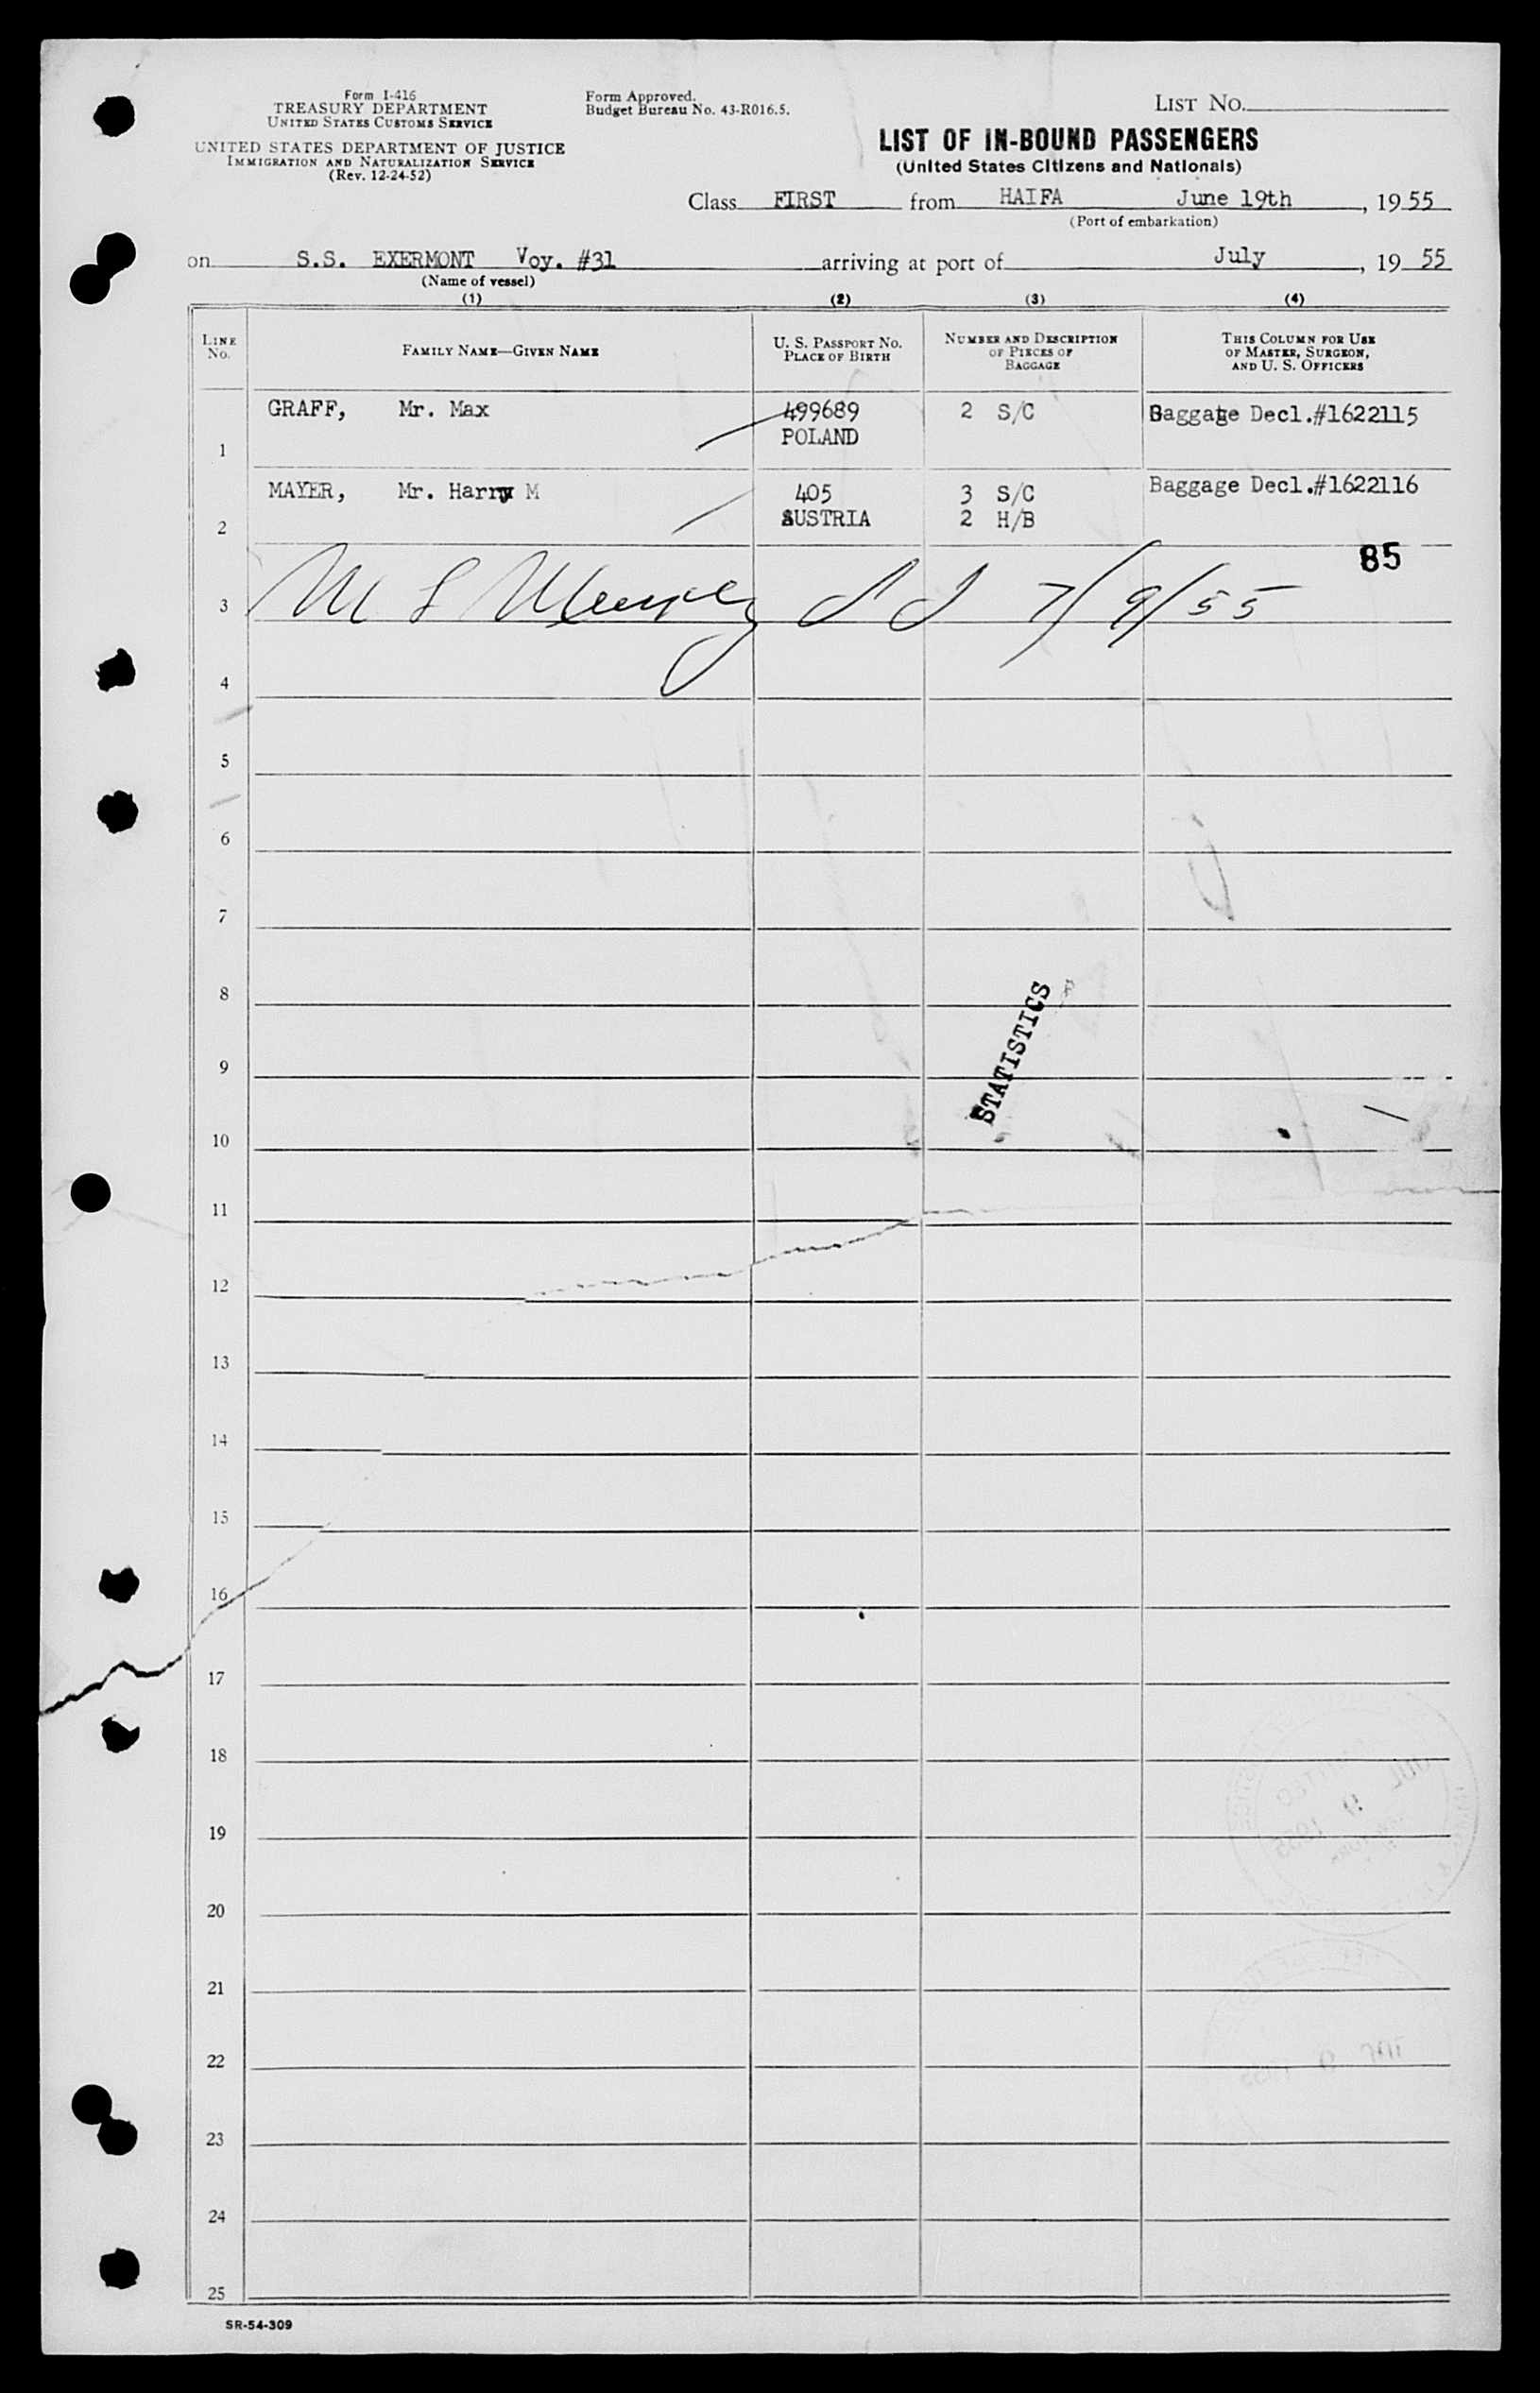 Form I-416
TREASURY DEPARTMENT
UNITED STATES CUSTOMS SERVICE
UNITED STATES DEPARTMENT OF JUSTICE
IMMIGRATION AND NATURALIZATION SERVICE
(Rev. 12-24-52)
Form Approved.
Budget Bureau No. 43-R016.5.
LIST NO.
LIST OF IN-BOUND PASSENGERS
(United States Citizens and Nationals)
Class FIRST from HAIFA June 19th, 1955
(Port of embarkation)
on S.S. EXERMONT Voy. #31 arriving at port of July, 1955
(Name of vessel)
(1) (2) (3) (4)
LINE NO.
FAMILY NAME—GIVEN NAME
U. S. PASSPORT NO.
PLACE OF BIRTH
NUMBER AND DESCRIPTION
OF PIECES OF
BAGGAGE
THIS COLUMN FOR USE
OF MASTER, SURGEON,
AND U. S. OFFICERS
1 GRAFF, Mr. Max 499689 2 S/C Baggage Decl.#1622115
POLAND
2 MAYER, Mr. Harry M 405 3 S/C Baggage Decl.#1622116
AUSTRIA 2 H/B
85
3 7/9/55
4
5
6
7
8
STATISTICS
9
10
11
12
13
14
15
16
17
18
19
20
21
22
23
24
25
SR-54-309